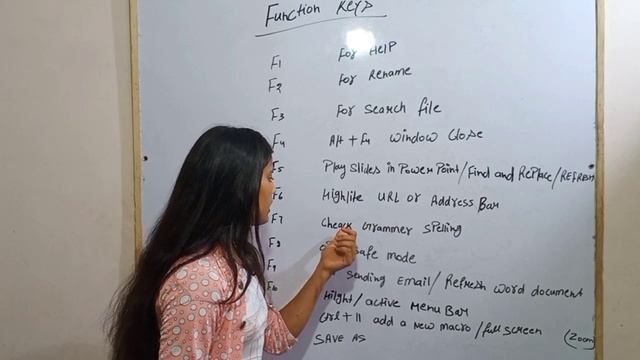 Function Keys
F1 For Help
F2 For Rename
F3 For Search file
F4 Alt + F4 Window Close
F5 Play Slides in PowerPoint/Find and RePlace/REFRESH
F6 Highlite URL or Address Bar
F7 Check Grammer Spelling
F8 Safe mode
F9 Sending Email/Refresh word document
F10 Hilight/active Menu Bar
Ctrl + 11 add a new macro/full screen (Zoom)
SAVE AS